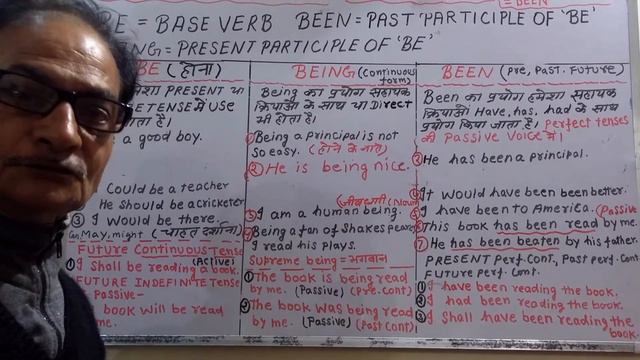 = BEEN
BE = BASE VERB BEEN = PAST PARTICIPLE OF 'BE'
= PRESENT PARTICIPLE OF 'BE'
BE (होना)
PRESENT या
TENSE में USE
जाता है।
a good boy.
Could be a teacher
He should be a cricketer
③ I would be there.
Can, May, might (चाहत दर्शाना)
Future Continuous Tense
(Active)
① I shall be reading a book.
FUTURE INDEFINITE Tense
Passive-
book will be read
me.
BEING (continuous form)
Being का प्रयोग सहायक
क्रियाओं के साथ या Direct
भी होता है।
① Being a principal is not
so easy. (होने के नाते)
② He is being nice.
जीवधारी (Noun)
③ I am a human being.
④ Being a fan of Shakespeare,
I read his plays.
Supreme being = भगवान
① The book is being read
by me. (Passive) (Pre. Cont)
② The book was being read
by me. (Passive) (Past Cont)
BEEN (Pre, Past, Future)
Been का प्रयोग हमेशा सहायक
क्रियाओं Have, has, had के साथ
प्रयोग किया जाता है। Perfect tenses
की Passive Voice में।
He has been a principal.
It would have been better.
I have been to America. (Passive
This book has been read by me.
⑦ He has been beaten by his father.
PRESENT Perf. Cont, Past perf. Cont.
FUTURE Perf. Cont.
① I have been reading the book.
② I had been reading the book.
③ I shall have been reading the
book